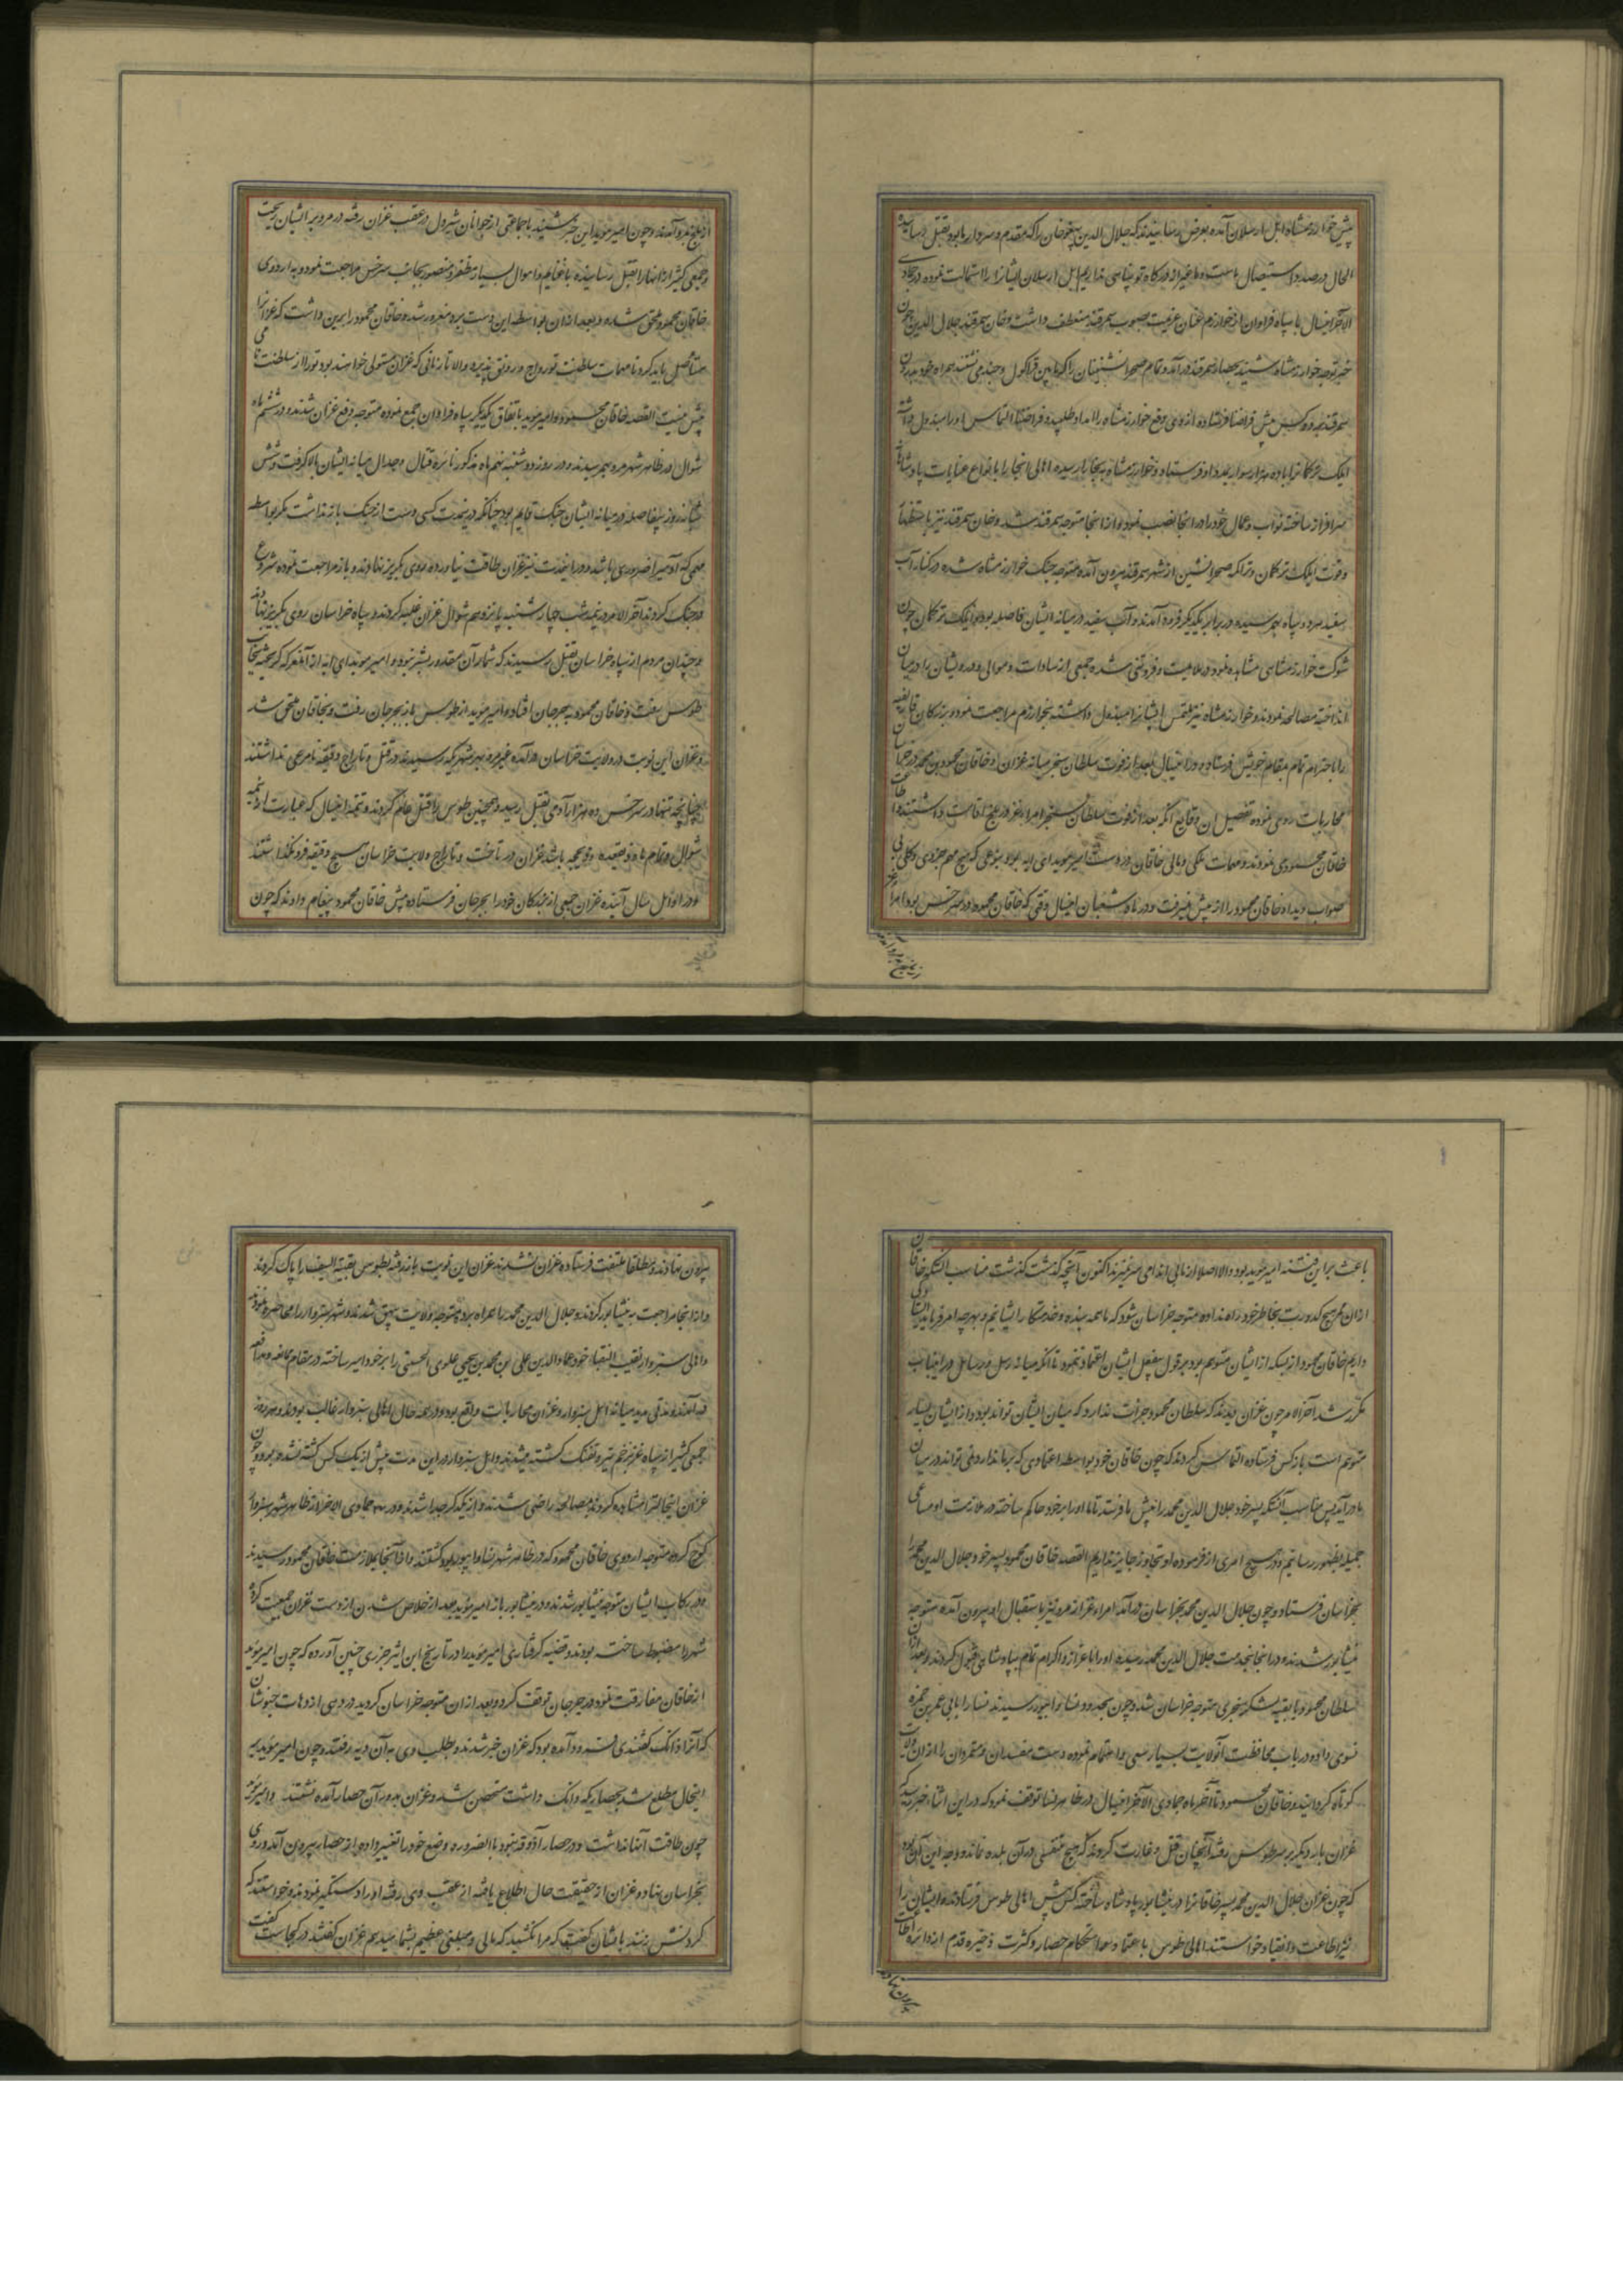 پیش خوارزمشاه ایل ارسلان آمده بعرض رسانیدند که جلال الدین پیغو خان را که مقدم و سردار ما بود بقتل رسانیده
الحال درصدد استیصال ماست و ما غیر از درگاه تو پناهی نداریم ایل ارسلان ایشانرا استمالت نموده در جمادی
الآخر اینسال با سپاه فراوان از خوارزم عنان عزیمت بصوب سمرقند منعطف داشت و خان سمرقند جلال الدین چون
خبر توجه خوارزمشاه شنید بحصار سمرقند درآمد و تمام صحرانشینان را که مابین قراکول و جند می نشستند همراه خود بدرون
سمرقند برد و کس پیش قراخطا فرستاده از وی دفع خوارزمشاه را امداد طلبید و قراخطا التماس او را مبذول داشته
ایلک ترکمانرا با ده هزار سوار بمدد او فرستاد و خوارزمشاه به بخارا رسیده اهالی انجا را بانواع عنایات پادشاهانه
سرافراز ساخته نواب و عمال خود را در انجا نصب نمود و از انجا متوجه سمرقند شد و خان سمرقند نیز باستظهار
و قوت ایلک ترکمان و تراکمه صحرانشین از شهر سمرقند بیرون آمده متوجه جنگ خوارزمشاه شده در کنار آب
سغد هر دو سپاه بهم رسیده در برابر یکدیگر فرود آمدند و آب سغد در میانه ایشان فاصله بود و ایلک ترکمان چون
شوکت خوارزمشاهی مشاهده نمود در ملامیت و فروتنی شده جمعی از سادات و موالی و درویشان را در میان
انداخته مصالحه نمودند و خوارزمشاه نیز ملتمس ایشانرا مبذول داشته بخوارزم مراجعت نمود و بزرگان قارلغیه
را با احترام تمام بمقام خویش فرستاد و در اینسال بعد از فوت سلطان سنجر میانه غزان و خاقان محمود بن محمد در خراسان
محاربات روی نموده تفصیل این وقایع آنکه بعد از فوت سلطان سنجر امراء غز در بلخ اقامت داشتند و اطاعت
خاقان محمود می نمودند و مهمات ملکی و مالی خاقان در دست امیر موید ای ابه بود بنوعی که هیچ مهم جزوی و کلی بی
صواب دید او خاقان محمود را از پیش نمیرفت و در ماه شعبان اینسال وقتی که خاقان محمود در سرخس بود امراء غز
از بلخ بمرو آمدند
از بلخ بمرو آمدند و چون امیر موید این خبر شنید با جماعتی از جوانان شیردل در عقب غزان رفته در مرو بر ایشان ریخت
و جمعی کثیر از انها را بقتل رسانیده با غنایم و اموال بسیار مظفر و منصور بجانب سرخس مراجعت نمود و به اردوی
خاقان محمود ملحق شده و بعد از ان بواسطه این دست برد مغرور شد و خاقان محمود را برین داشت که غزانرا
مستاصل باید کرد تا مهمات سلطنت تو رواج و رونق پذیرد و الا تا زمانی که غزان مستولی خواهند بود تو را از سلطنت نامی
بیش نیست القصه خاقان محمود و امیر موید باتفاق یکدیگر سپاه فراوان جمع نموده متوجه دفع غزان شدند و در ششم ماه
شوال در ظاهر شهر مرو بهم رسیدند و در روز دوشنبه نهم ماه مذکور نایره قتال و جدال میانه ایشان بالا گرفت و شش
شبانه روز بیفاصله در میانه ایشان جنگ قایم بود چنانکه در ینمدت کسی دست از جنگ باز نداشت مگر بواسطه
مهمی که آدمیرا ضروری باشد و در اینمدت نیز غزان طاقت نیاورده روی بگریز نهادند و باز مراجعت نموده شروع
در جنگ کردند آخر الامر در نیمه شب چهارشنبه پانزدهم شوال غزان غلبه کردند و سپاه خراسان روی بگریز نهادند
و چندان مردم از سپاه خراسان بقتل رسیدند که شمار آن مقدور بشر نبود و امیر موید ای ابه از آن معرکه گریخته بجانب
طوس رفت و خاقان محمود به جرجان افتاد و امیر موید از طوس باز بجرجان رفت و بخاقان ملحق شد
و غزان این نوبت در ولایت خراسان درآمده غیر مرو بهر شهر که رسیدند در قتل و تاراج دقیقه نامرعی نداشتند
چنانچه تنها در سرخس ده هزار آدمی بقتل رسید و همچنین طوس را قتل عام کردند و تتمه اینسال که عبارت از نیمه
شوال و تمام ماه ذوقعده و ذیحجه باشد غزان در تاخت و تاراج ولایت خراسان هیچ دقیقه فرو نگذاشتند
و در اوائل سال آینده غزان جمعی از بزرگان خود را بجرجان فرستاده پیش خاقان محمود پیغام دادند که چون
باعث بر این فتنه امیر موید بود والا اصلا از ما بی اندامی سر نمیزند اکنون آنچه گذشت گذشت مناسب آنکه خاقان
از ان ممر هیچ کدورت بخاطر خود راه نداده متوجه خراسان شود که ما همه بنده و خدمتکار ایشانیم و بهر چه امر فرماید
داریم خاقان محمود از بسکه از ایشان متوهم بود بر قول و فعل ایشان اعتماد ننمود تا آنکه میانه رسل و رسایل در اینباب
مکرر شد آخر الامر چون غزان دیدند که سلطان محمود جرات ندارد که میان ایشان تواند بود و از ایشان بسیار
متوهم است باز کس فرستاده التماس کردند که چون خاقان خود بواسطه اعتمادی که بر ما ندارد نمی تواند در میان
ما درآید پس مناسب آنکه پسر خود جلال الدین محمد را پیش ما فرستد تا ما او را بر خود حاکم ساخته در ملازمت او مساعی
جمیله بظهور رسانیم و در هیچ امری از فرموده او تجاوز جایز نداریم القصه خاقان محمود پسر خود جلال الدین محمد را
بخراسان فرستاد و چون جلال الدین محمد بخراسان درآمد امراء غز از مرو نیز باستقبال او بیرون آمده متوجه
نیشابور شدند و در انجا بخدمت جلال الدین محمد رسیده او را با عزاز و اکرام تمام بپادشاهی قبول کردند و بعد از آن
سلطان محمود با بقیه لشکر سنجری متوجه خراسان شد و چون بحدود نسا و ابیورد رسیدند نسا را بابی عمر بن حمزه
نسوی داده در باب محافظت آنولایت بسیار سعی و اهتمام نموده دست مفسدان و متمردان را از ان ولایت
کوتاه گردانید و خاقان محمود تا آخر ماه جمادی الآخر اینسال در ظاهر نسا توقف نمود که در این اثناء خبر رسید که
غزان بار دیگر بر سر طوس رفته آنچنان قتل و غارت کردند که هیچ متنفسی در آن بلده نماند و وجه این آن بود
که چون غزان جلال الدین محمد پسر خاقانرا در نیشابور پادشاه ساخته کس پیش اهالی طوس فرستادند و ایشان را
نیز اطاعت و انقیاد خواستند اهالی طوس با عتماد و استحکام حصار و کثرت ذخیره قدم از دایره اطاعت
بیرون نهادند
بیرون نهادند و مطلقا ملتفت فرستاده غزان نشدند غزان این نوبت باز رفته بطوس بقیة السیف را پاک کردند
و از انجا مراجعت به نیشابور کردند و جلال الدین محمد را همراه برده متوجه ولایت بیهق شدند و شهر سبزوار را محاصره نمودند
و اهالی سبزوار نقیب النقباء خود عماد الدین علی بن محمد بن یحیی علوی الحسینی را بر خود امیر ساخته در مقام ممانعه و مدافعه
درآمدند و مدتی مدید میانه اهل سبزوار و غزان محاربات واقع بود و در همه حال اهالی سبزوار غالب بودند و هر روز
جمعی کثیر از سپاه غز بزخم تیر و تفنگ کشته میشدند و از اهل سبزوار در این مدت بیش از یک کس کشته نشده بود و چون
غزان اینحالترا مشاهده کردند بمصالحه راضی شدند و از یکدیگر جدا شدند و در جمادی الاخر از ظاهر شهر سبزوار
کوچ کرده متوجه اردوی خاقان محمود که در ظاهر شهر نسا و ابیورد بود گشتند و در آنجا بملازمت خاقان محمود رسیدند
و در رکاب ایشان متوجه نیشابور شدند و در نیشابور باز امیر موید بعد از خلاص شدن از دست غزان جمعیت کرده
شهر را مضبوط ساخت بودند و قضیه گرفتاری امیر موید را در تاریخ ابن اثیر جزری چنین آورده که چون امیر موید
از خاقان مفارقت نمود در جرجان توقف کرد و بعد از ان متوجه خراسان گردید در دهی از دهات خبوشان
که آنرا زانک گفتندی فرود آمده بود که غزان خبر شدند و بطلب وی به آن دیه رفتند و چون امیر موید بر
اینحال مطلع شد بحصاریکه زانک داشت متحصن شد و غزان بدور آن حصار آمده نشستند و امیر موید
چون طاقت آنها نداشت و در حصار آذوقه نبود بالضروره وضع خود را تغییر داده از حصار بیرون آمد و روی
بخراسان نهاد و غزان از حقیقت حال اطلاع یافته از عقب وی رفته او را دستگیر نمودند و خواستند که
گردنش زنند با ایشان گفت که مرا نکشید که مالی و مبلغی عظیم بشما میدهم غزان گفتند در کجاست گفت